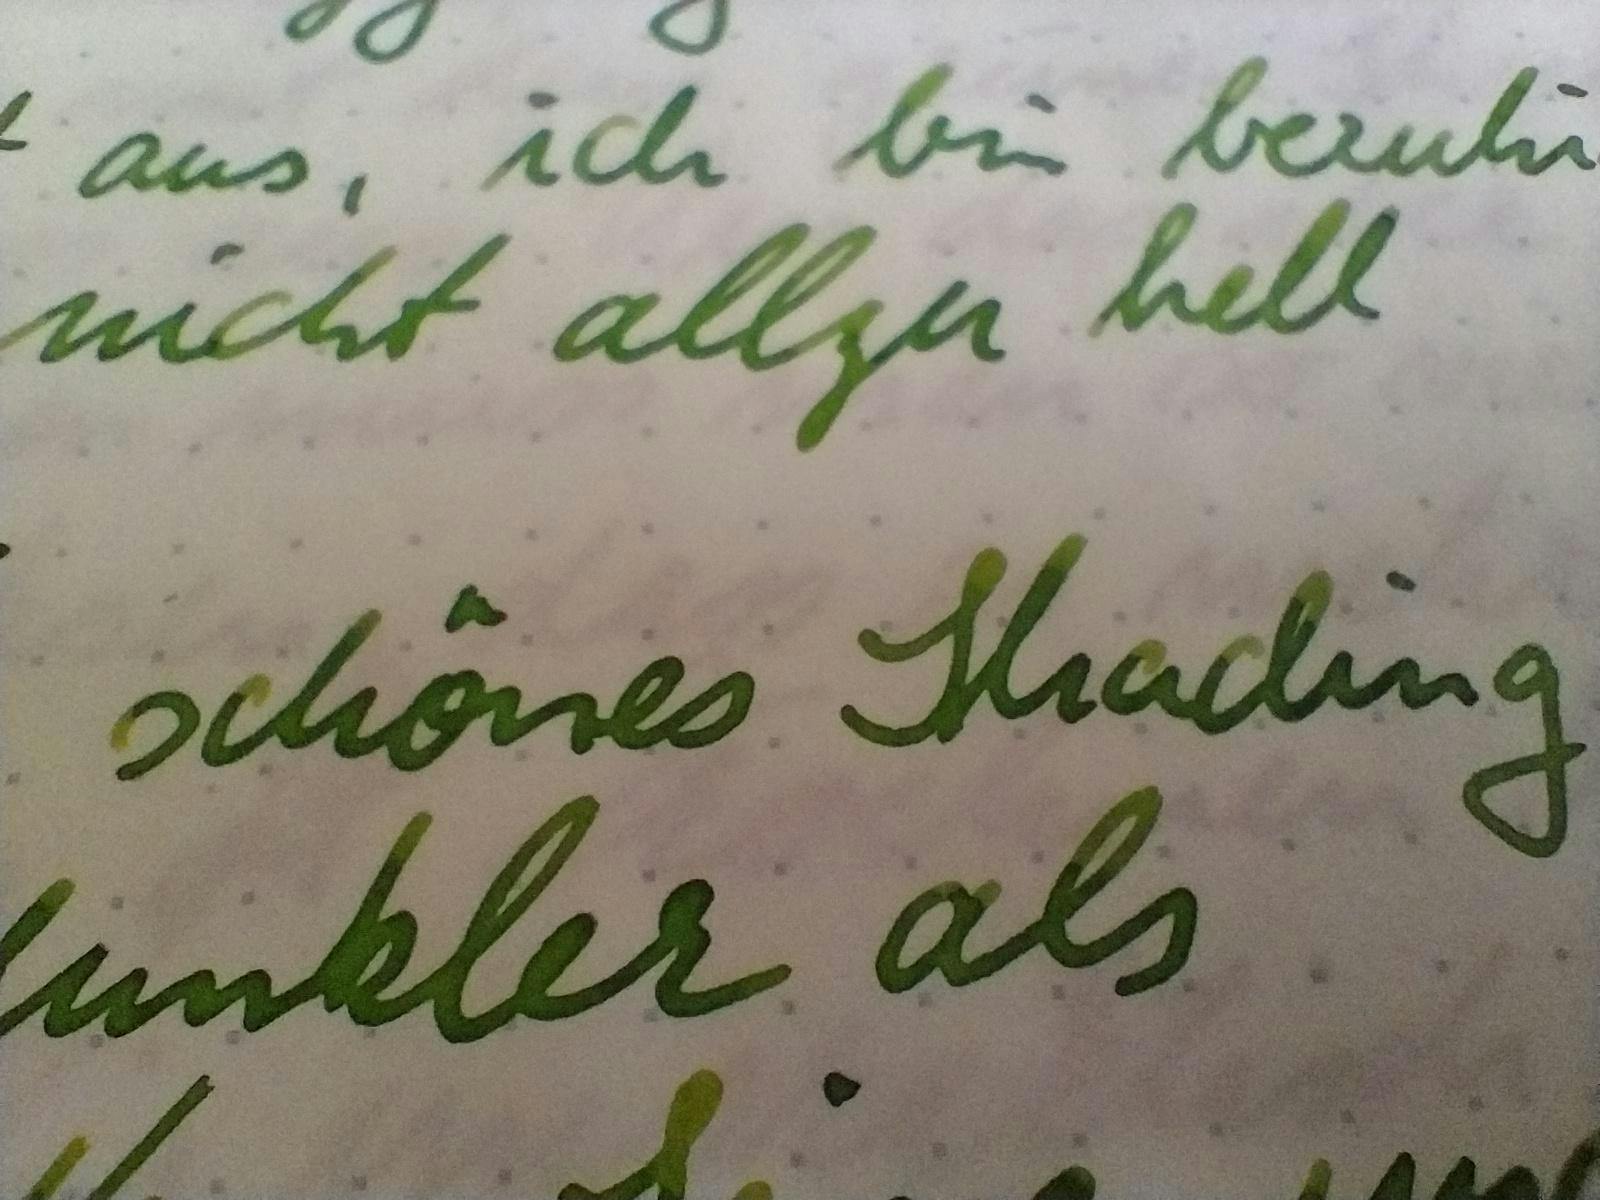 aus, ich bin beruhi
nicht allzu hell
schönes Shading
dunkler als